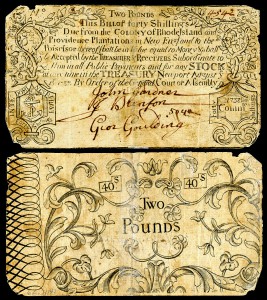 Two Pounds 5042
This Bill of forty Shillings
Due from the Colony of Rhode Island and
Providence Plantation in New England to the
Possessor thereof shall be in Value equal to Money & shall be
Accepted by the Treasurer & Receivers Subordinate to
Him in all Public Payments and for any STOCK
at any time in the TREASURY Newport August
By Order of the General Court or Assembly
John Gardner
Benson
5042
Geor Goulding
1738
40S 40S
Two
Pounds